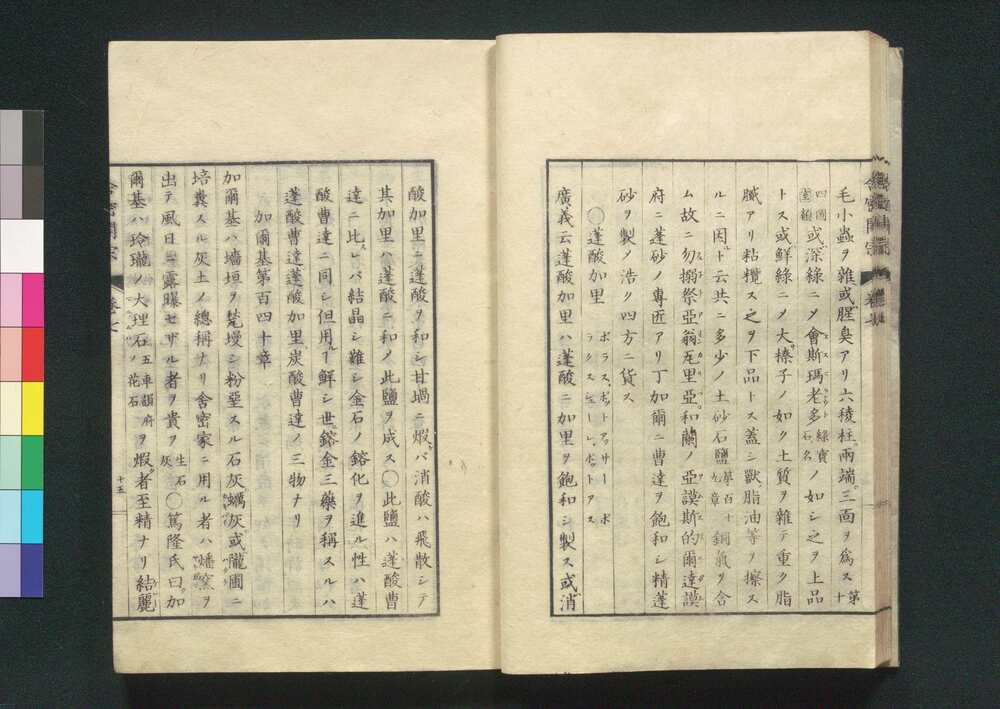 毛小蟲ヲ雜或腥臭アリ六稜柱兩端三面ヲ爲ス第十
四圖或深綠ニ〆會斯瑪老多綠寶石名ノ如シ之ヲ上品
トス或鮮綠ニ〆大榛子ノ如ク土質ヲ雜テ重ク脂
膩アリ粘攬ス之ヲ下品トス蓋シ獸脂油等ヲ擦ス
ルニ因ルト云共ニ多少ノ土砂石鹽第百十九章銅氣ヲ含
ム故ニ勿搦祭亞翁瓦里亞和蘭ノ亞謨斯的爾達謨
府ニ蓬砂ノ專匠アリ丁加爾ニ曹達ヲ飽和シ精蓬
砂ヲ製〆浩ク四方ニ貨ス
○蓬酸加里
廣義云蓬酸加里ハ蓬酸ニ加里ヲ飽和シ製ス或消
酸加里ニ蓬酸ヲ和シ甘堝ニ煆バ消酸ハ飛散シテ
其加里ハ蓬酸ニ和〆此鹽ヲ成ス○此鹽ハ蓬酸曹
達ニ比スレバ結晶シ難シ金石ノ鎔化ヲ進ル性ハ蓬
酸曹達ニ同シ但用ルヿ鮮シ世鎔金三藥ヲ稱スルハ
蓬酸曹達蓬酸加里炭酸曹達ノ三物ナリ
加爾基第百四十章
加爾基ハ墻垣ヲ甃墁シ粉堊スル石灰蠣灰或隴圃ニ
培糞スル灰土ノ總稱ナリ舍密家ニ用ル者ハ燔窯ヲ
出テ風日ニ露曝セザル者ヲ貴ヲ生石灰○篤隆氏曰加
爾基ハ玲瓏ノ大理石五車韻府ノ花石ヲ煆者至精ナリ結麗
十五